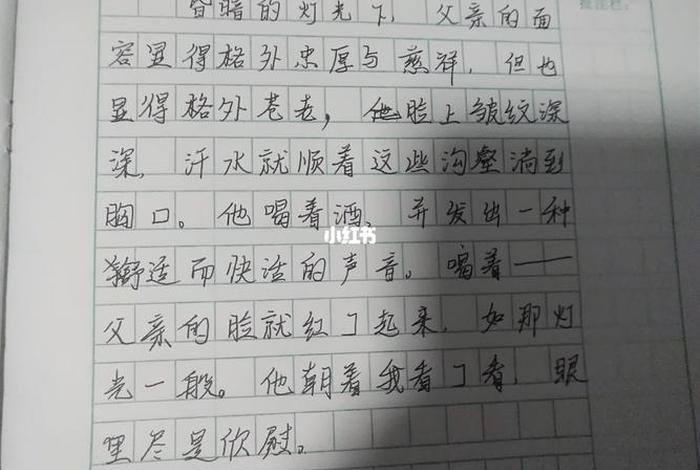 昏暗的灯光下，父亲的面
批注栏：
容显得格外忠厚与慈祥，但也
显得格外苍老，他脸上皱纹深
深，汗水就顺着这些沟壑淌到
胸口。他喝着酒，并发出一种
小红书
舒适而快活的声音。喝着——
父亲的脸就红了起来，如那灯
光一般。他朝着我看了看，眼
里尽是欣慰。